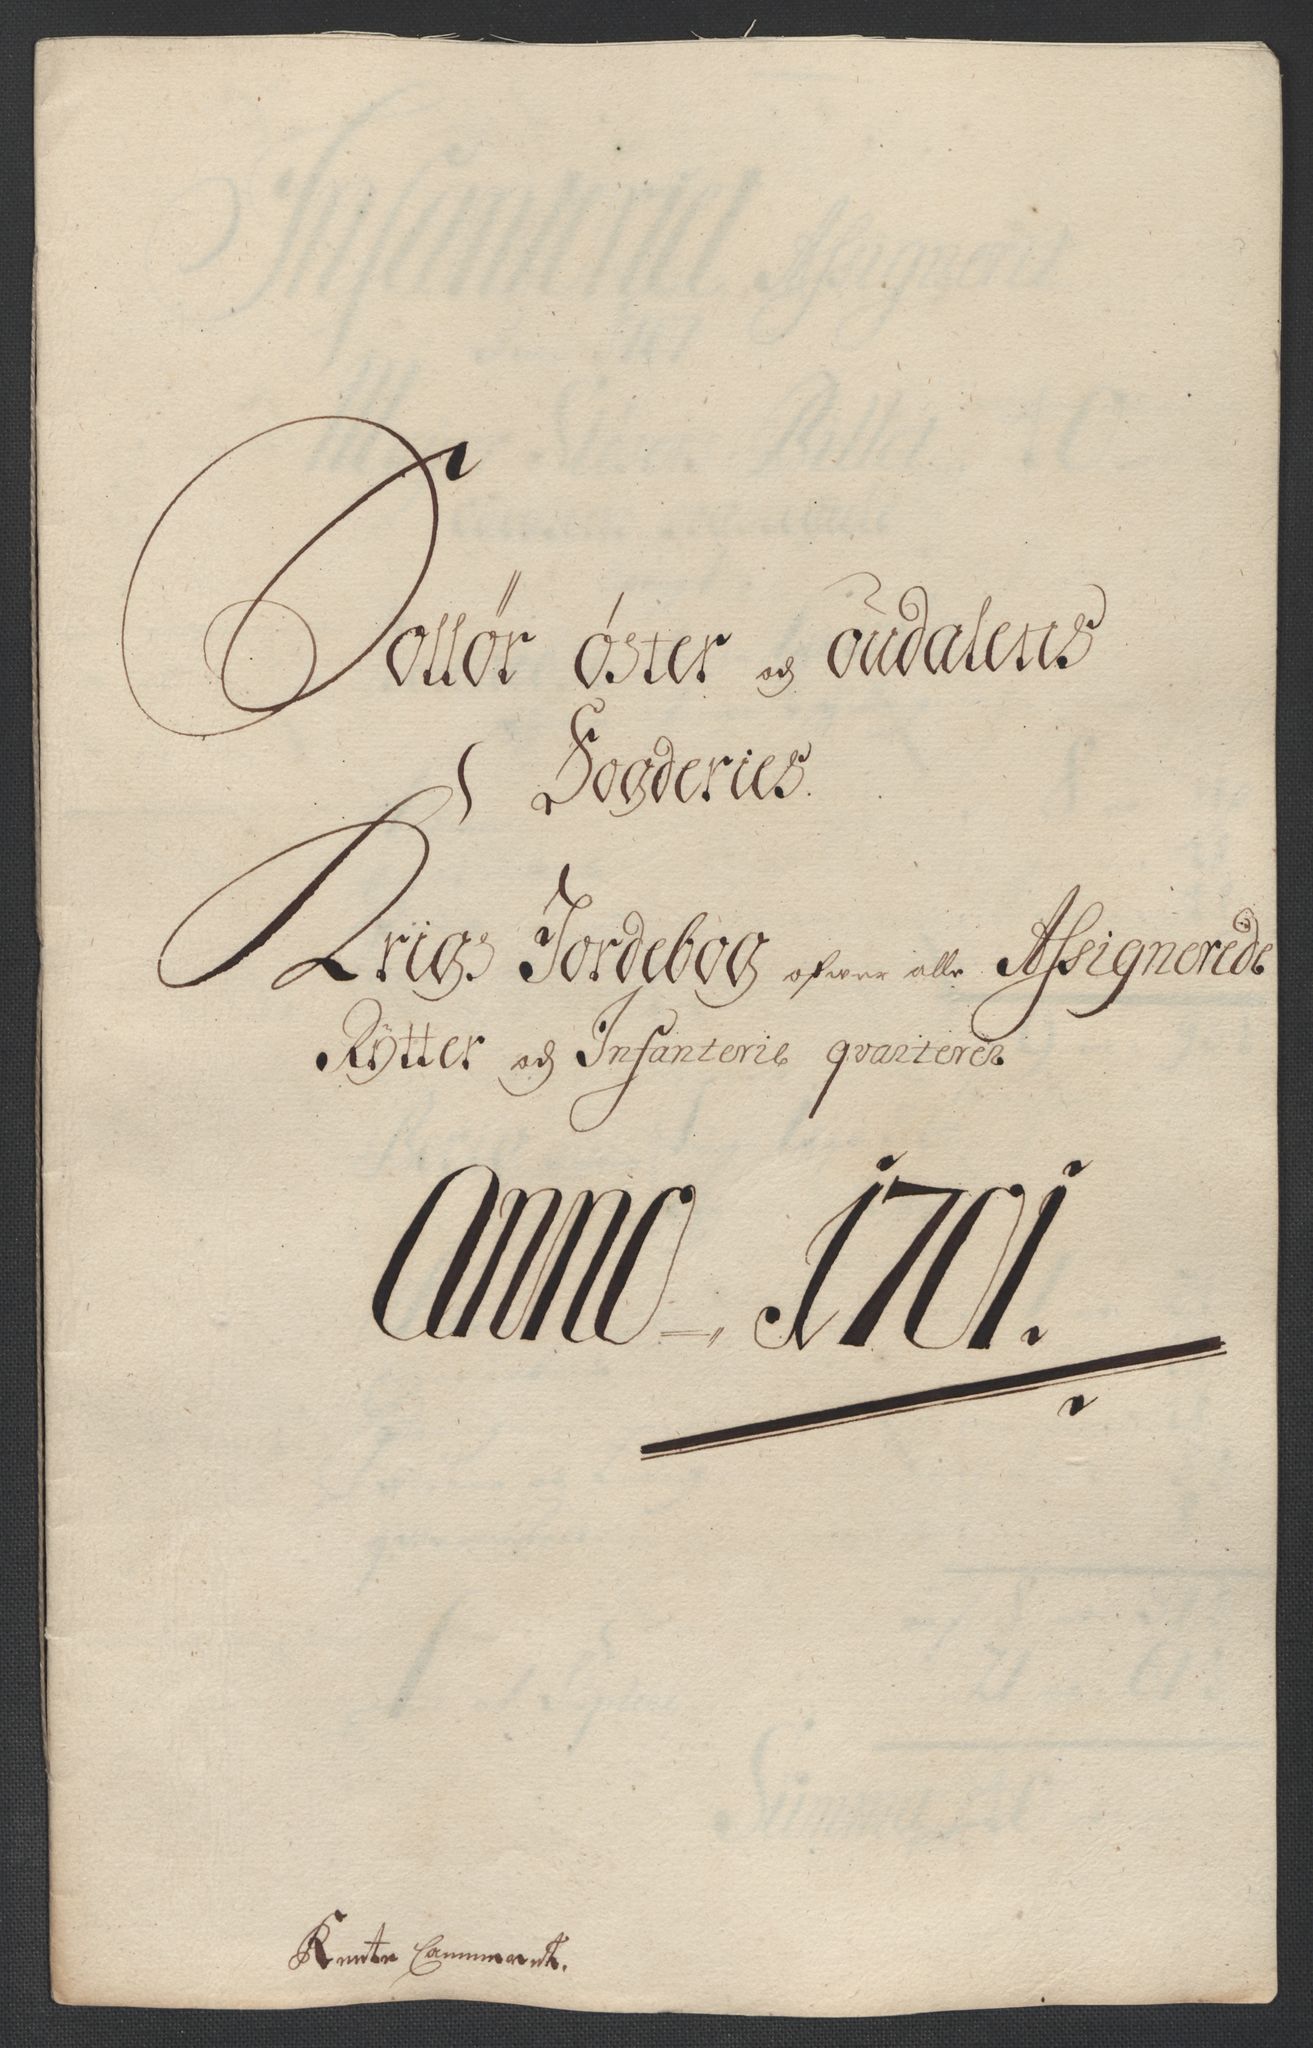 Sollør øster og oudalens
Fogderies
Krigs Jordebog ofwer alle Assignerede
Rÿtter og Infanterie qvarterer
Anno 1701.
Rente Cammeret.